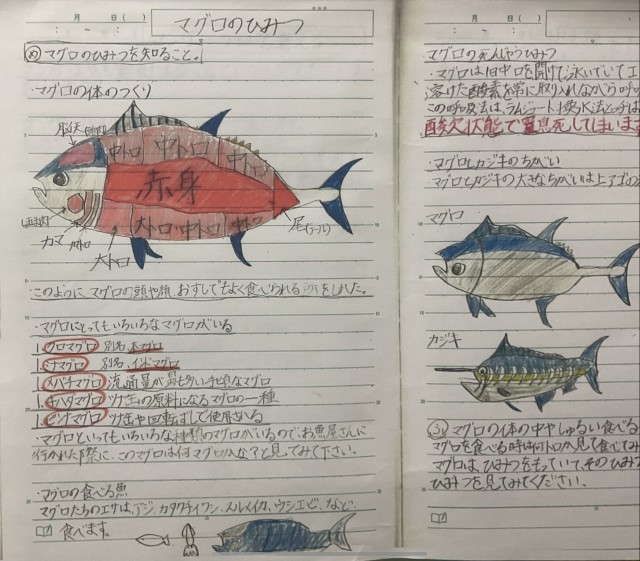 月 日( )
マグロのひみつ
め マグロのひみつを知ること。
・マグロの体のつくり
中トロ
中トロ
中トロ
赤身
大トロ
中トロ
中トロ
カマ
大トロ
尾(テール)
このようにマグロの頭や頬、おすしでもよく食べられる
・マグロにとってもいろいろなマグロがいる
1 クロマグロ 別名 本マグロ
1 ミナマグロ 別名 インドマグロ
1 メバチマグロ 流通量が最も多い手頃なマグロ
1 キハダマグロ ツナ缶の原料になるマグロの一種
1 ビンナマグロ ツナ缶や回転ずしで使用される
・マグロといってもいろいろな種類のマグロがいるのでお魚屋さんに
行かれた際に、このマグロは何マグロかな?と見てみて下さい。
・マグロの食べる魚
マグロたちのエサは、アジ、カタクチイワシ、スルメイカ、ウシエビ、など
食べます。
月 日( )
マグロの死んじゃうひみつ
・マグロは1日中口を開けて泳いでいてエ
溶けた酸素を常に取り入れながら呼
この呼吸法は、ラムジュート換水法と呼ば
酸欠状態で窒息死してしまいます
・マグロとカジキのちがい
マグロとカジキの大きなちがいは上アゴの
マグロ
カジキ
マグロの体の中や
マグロを食べる時は何トロか見て食べてみ
マグロは、ひみつをもっていて、そのひみつ
ひみつを見てみてください。